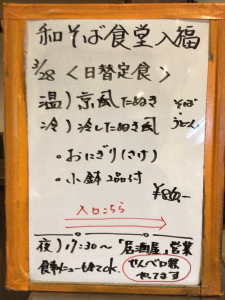 和そば食堂入福
3/28 <日替定食>
温)京風たぬき そば
冷)冷したぬき風 うどん
・おにぎり(さけ)
・小鉢2品付
¥800-
入口こちら
夜)17:30~「居酒屋」営業
食事メニューもok.
せんべろ祭
やってます